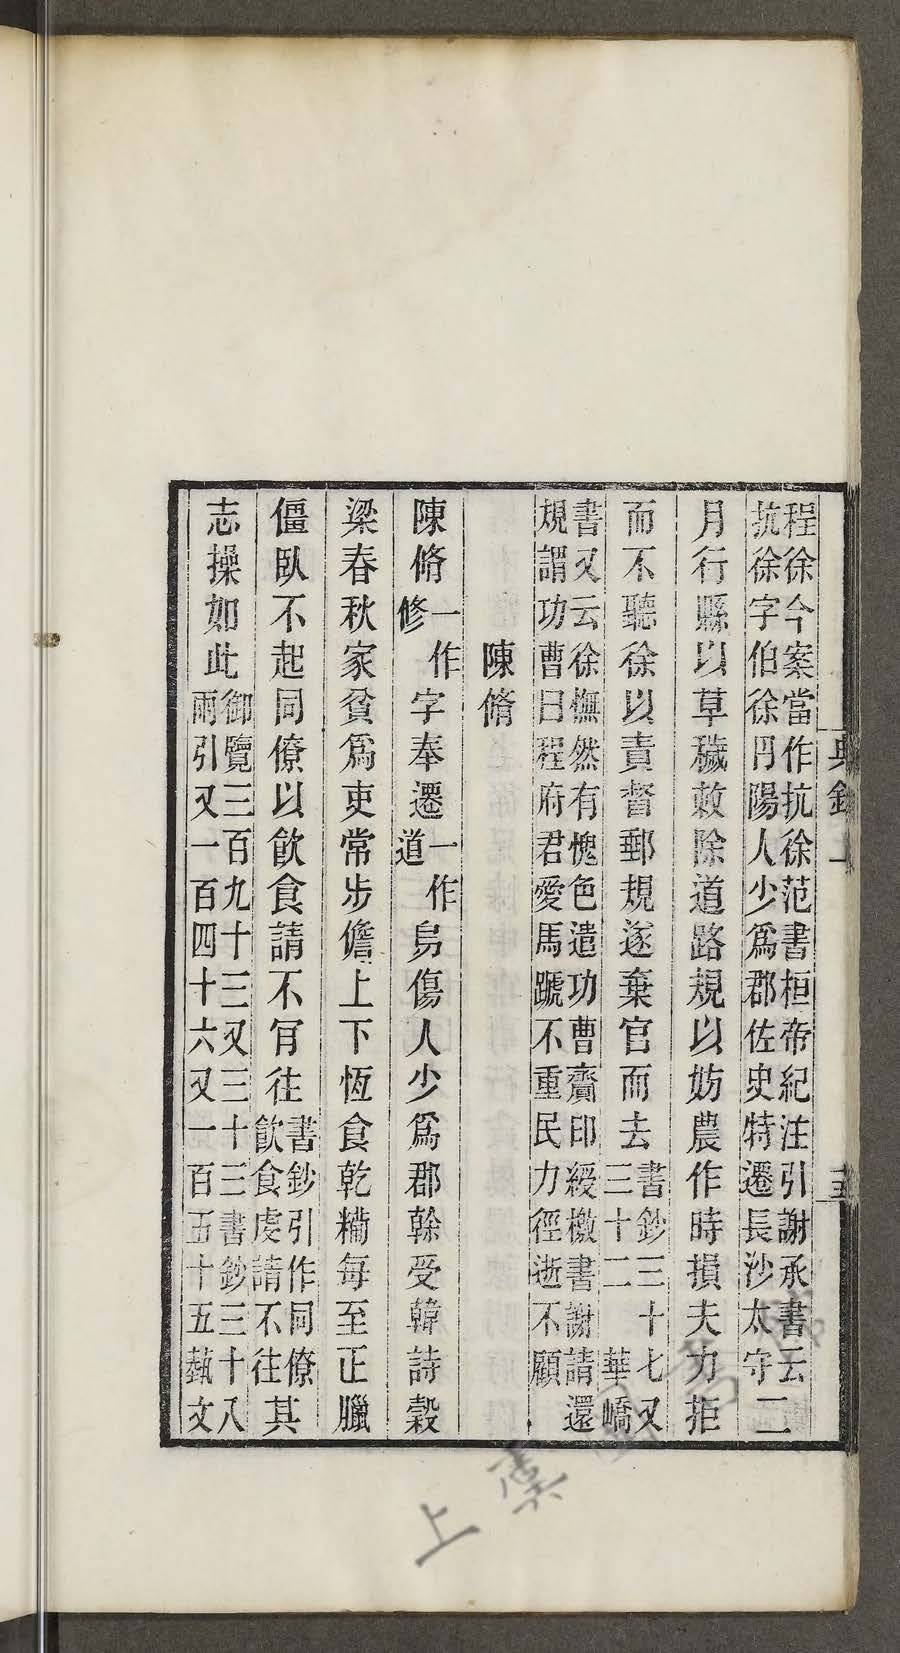 典錄上
程徐今案當作抗徐范書桓帝紀注引謝承書云
抗徐字伯徐丹陽人少爲郡佐史特遷長沙太守二
月行縣以草穢敕除道路規以妨農作時損夫力拒
而不聽徐以責督郵規遂棄官而去書鈔三十七又三十二華嶠
書又云徐憮然有愧色遣功曹齎印綬檄書謝請還
規謂功曹曰程府君愛馬蹏不重民力徑逝不顧
陳脩
陳脩一作修字奉遷一作道烏傷人少爲郡幹受韓詩穀
梁春秋家貧爲吏常步儋上下恆食乾糒每至正臘
僵臥不起同僚以飮食請不肎往書鈔引作同僚其飮食虔請不往
志操如此御覽三百九十三又三十三書鈔三十八兩引又一百四十六又一百五十五藝文
上虞